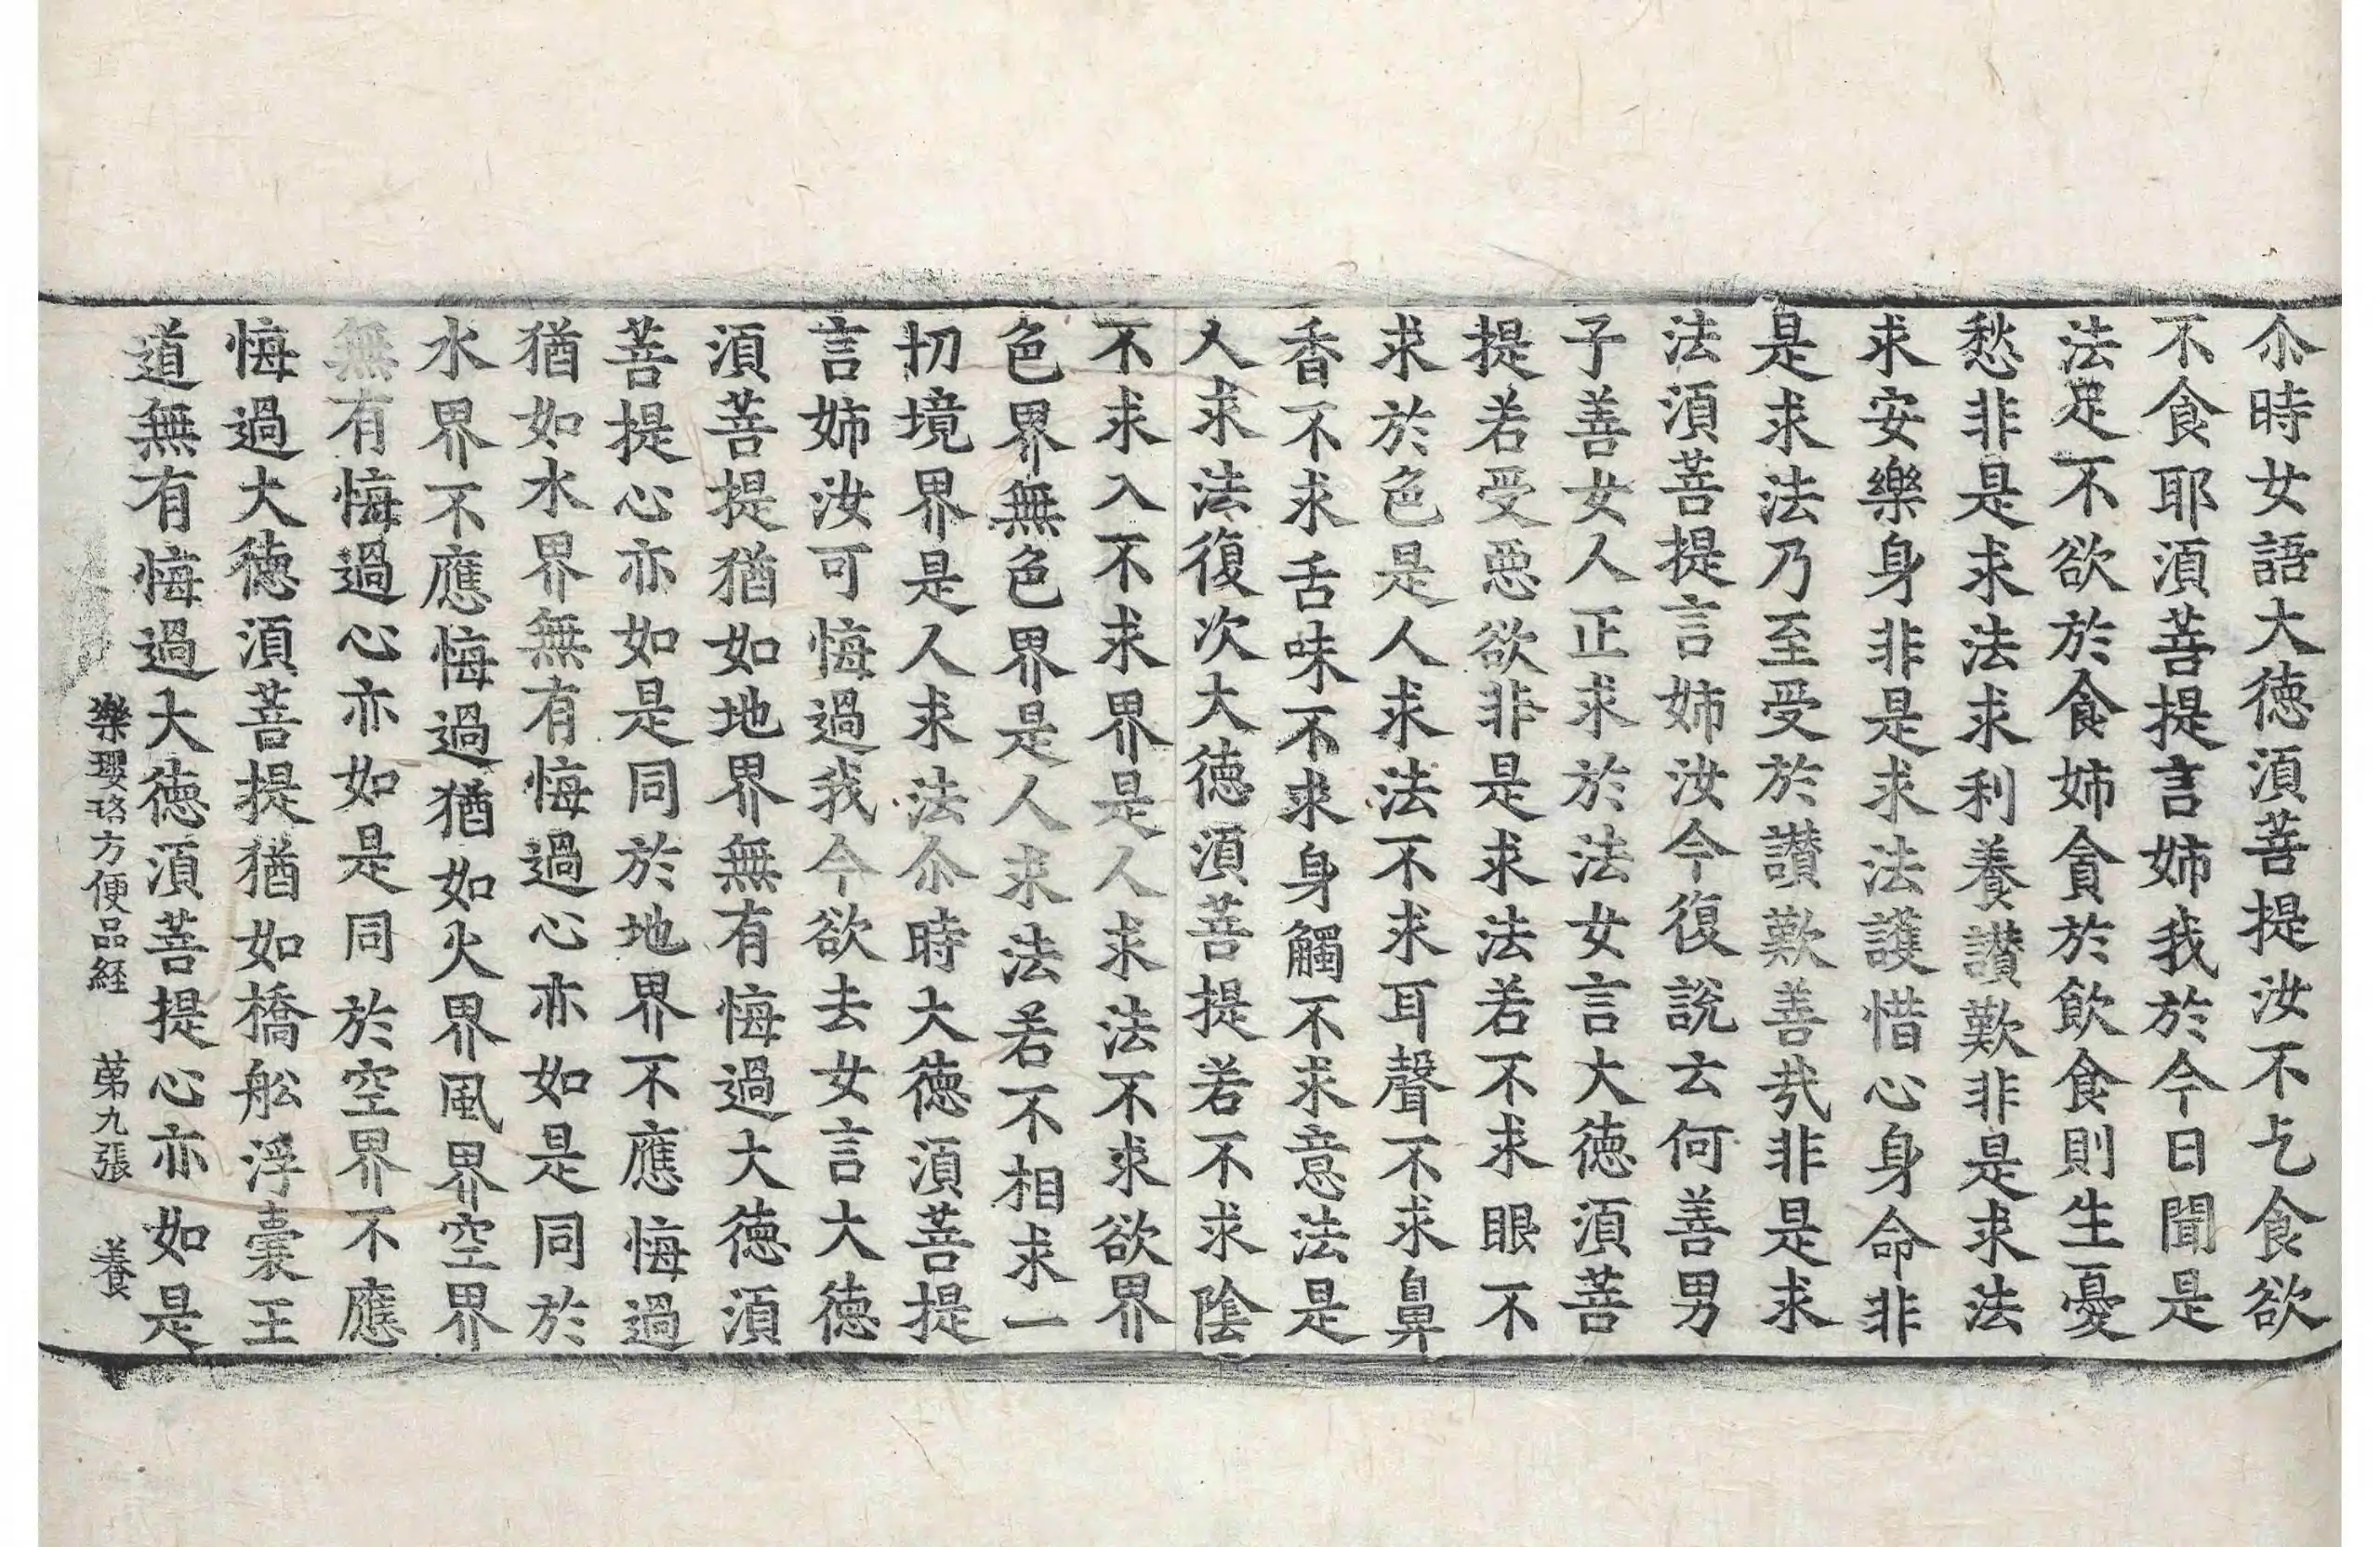 尒時女語大徳湏菩提汝不乞食欲
不食耶湏菩提言姉我於今日聞是
法足不欲於食姉貪於飲食則生憂
愁非是求法求利養讃歎非是求法
求安樂身非是求法護惜心身命非
是求法乃至受於讃歎善㢤非是求
法湏菩提言姉汝今復說云何善男
子善女人正求於法女言大徳湏菩
提若受悪欲非是求法若不求眼不
求於色是人求法不求耳聲不求鼻
香不求舌味不求身觸不求意法是
人求法復次大徳湏菩提若不求陰
不求入不求界是人求法不求欲界
色界無色界是人求法若不相求一
切境界是人求法尒時大徳湏菩提
言姉汝可悔過我今欲去女言大徳
湏菩提猶如地界無有悔過大徳湏
菩提心亦如是同於地界不應悔過
猶如水界無有悔過心亦如是同於
水界不應悔過猶如火界風界空界
無有悔過心亦如是同於空界不應
悔過大徳湏菩提猶如橋舩浮囊王
道無有悔過大徳湏菩提心亦如是
樂瓔珞方便品経 苐九張 養